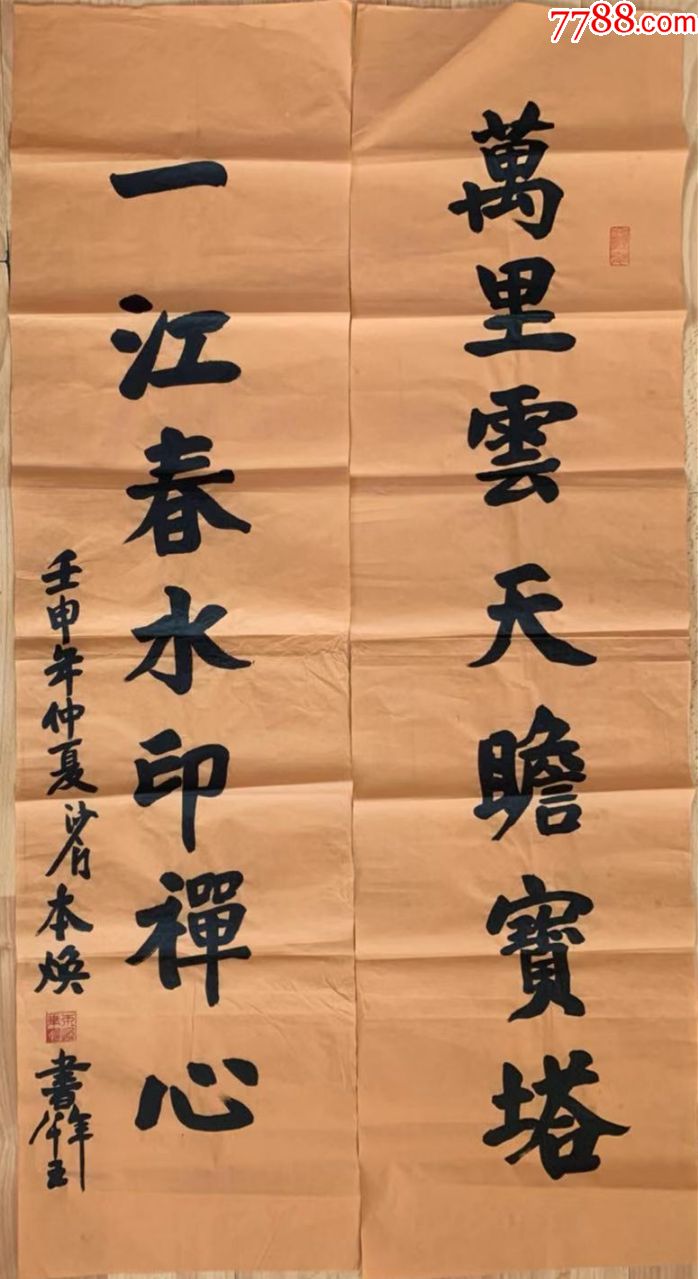 7788.com
萬里雲天瞻寶塔
一江春水印禪心
壬申年仲夏沙门本焕書年八十五